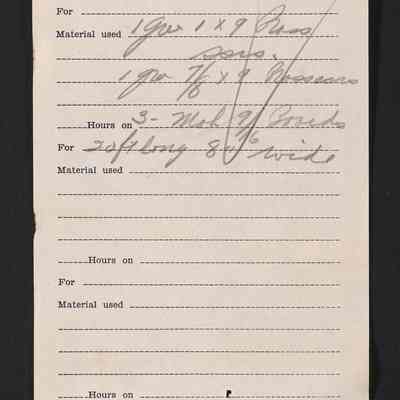 For
Material used 1 gro 1 x 9 Ross
sers.
1 gro 7/8 x 9 Rossers
Hours on 3 - Mol 9/16 Boards
For 20 ft long 8" wide
Material used
Hours on
For
Material used
Hours on